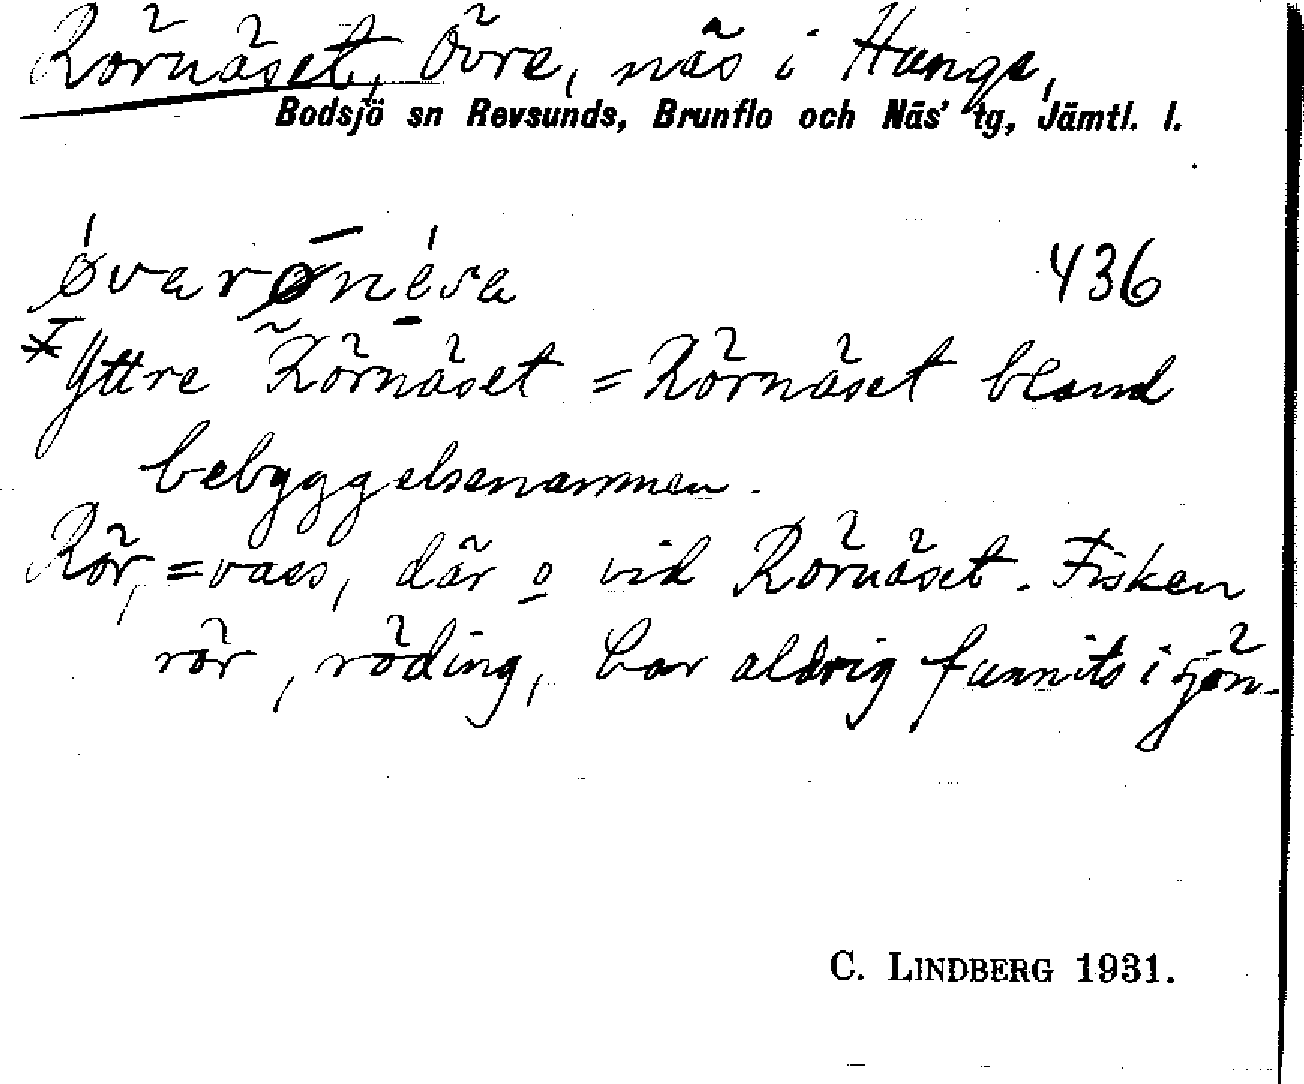 Rörnäset, Övre, näs i Hunge,
Bodsjö sn Revsunds, Brunflo och Näs' tg, Jämtl. l.
øvarønesa 436
Yttre Rörnäset = Rörnäset bland
bebyggelsenamnen.
Rör, = vass, där o vid Rörnäset. Fisken
rör, röding, har aldrig funnits i sjön.
C. LINDBERG 1931.